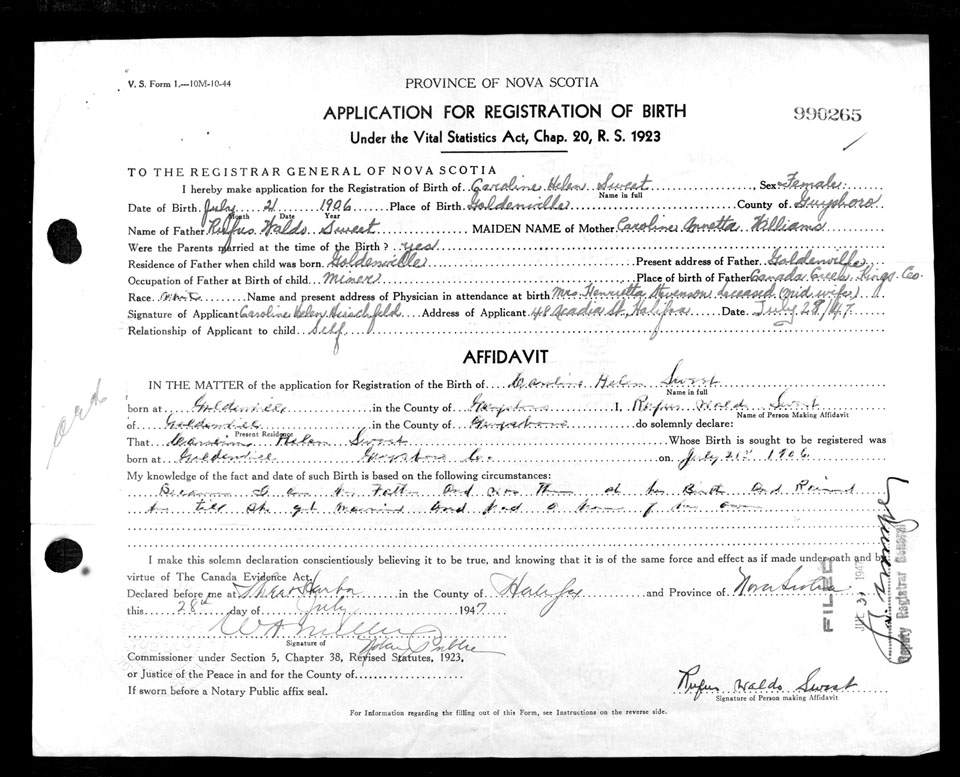 V. S. Form 1.—10M-10-44
PROVINCE OF NOVA SCOTIA
APPLICATION FOR REGISTRATION OF BIRTH
990265
Under the Vital Statistics Act, Chap. 20, R. S. 1923
TO THE REGISTRAR GENERAL OF NOVA SCOTIA
I hereby make application for the Registration of Birth of Caroline Helen Swest, Sex Female
Name in full
Date of Birth July 21 1906 Place of Birth Goldenville County of Guysboro
Month Date Year
Name of Father Rufus Waldo Swest MAIDEN NAME of Mother Caroline Annetta Williams
Were the Parents married at the time of the Birth? yes
Residence of Father when child was born Goldenville Present address of Father Goldenville
Occupation of Father at Birth of child Miner Place of birth of Father Canada Creek, Kings Co.
Race Name and present address of Physician in attendance at birth Mrs Henrietta deceased (Mid wife)
Signature of Applicant Caroline Helen Hirschfeld Address of Applicant 48 Acadia St, Halifax Date July 28/47
Relationship of Applicant to child Self
AFFIDAVIT
IN THE MATTER of the application for Registration of the Birth of Caroline Helen Swest
Name in full
born at Goldenville in the County of Guysboro I, Rufus Waldo Swest
Name of Person Making Affidavit
of Goldenville in the County of Guysboro do solemnly declare:
Present Residence
That Caroline Helen Swest Whose Birth is sought to be registered was
born at Goldenville Guysboro Co. on July 21st 1906
My knowledge of the fact and date of such Birth is based on the following circumstances:
Because I am her Father and was there at her Birth and Raised
her till she got married and had a home of her own
I make this solemn declaration conscientiously believing it to be true, and knowing that it is of the same force and effect as if made under oath and by
virtue of The Canada Evidence Act.
Declared before me at Harbor in the County of Halifax and Province of Nova Scotia
this 28th day of July 1947
Signature of Notary Public
Commissioner under Section 5, Chapter 38, Revised Statutes, 1923,
or Justice of the Peace in and for the County of
If sworn before a Notary Public affix seal.
Rufus Waldo Swest
Signature of Person making Affidavit
For Information regarding the filling out of this Form, see Instructions on the reverse side.
FILED
Deputy Registrar General